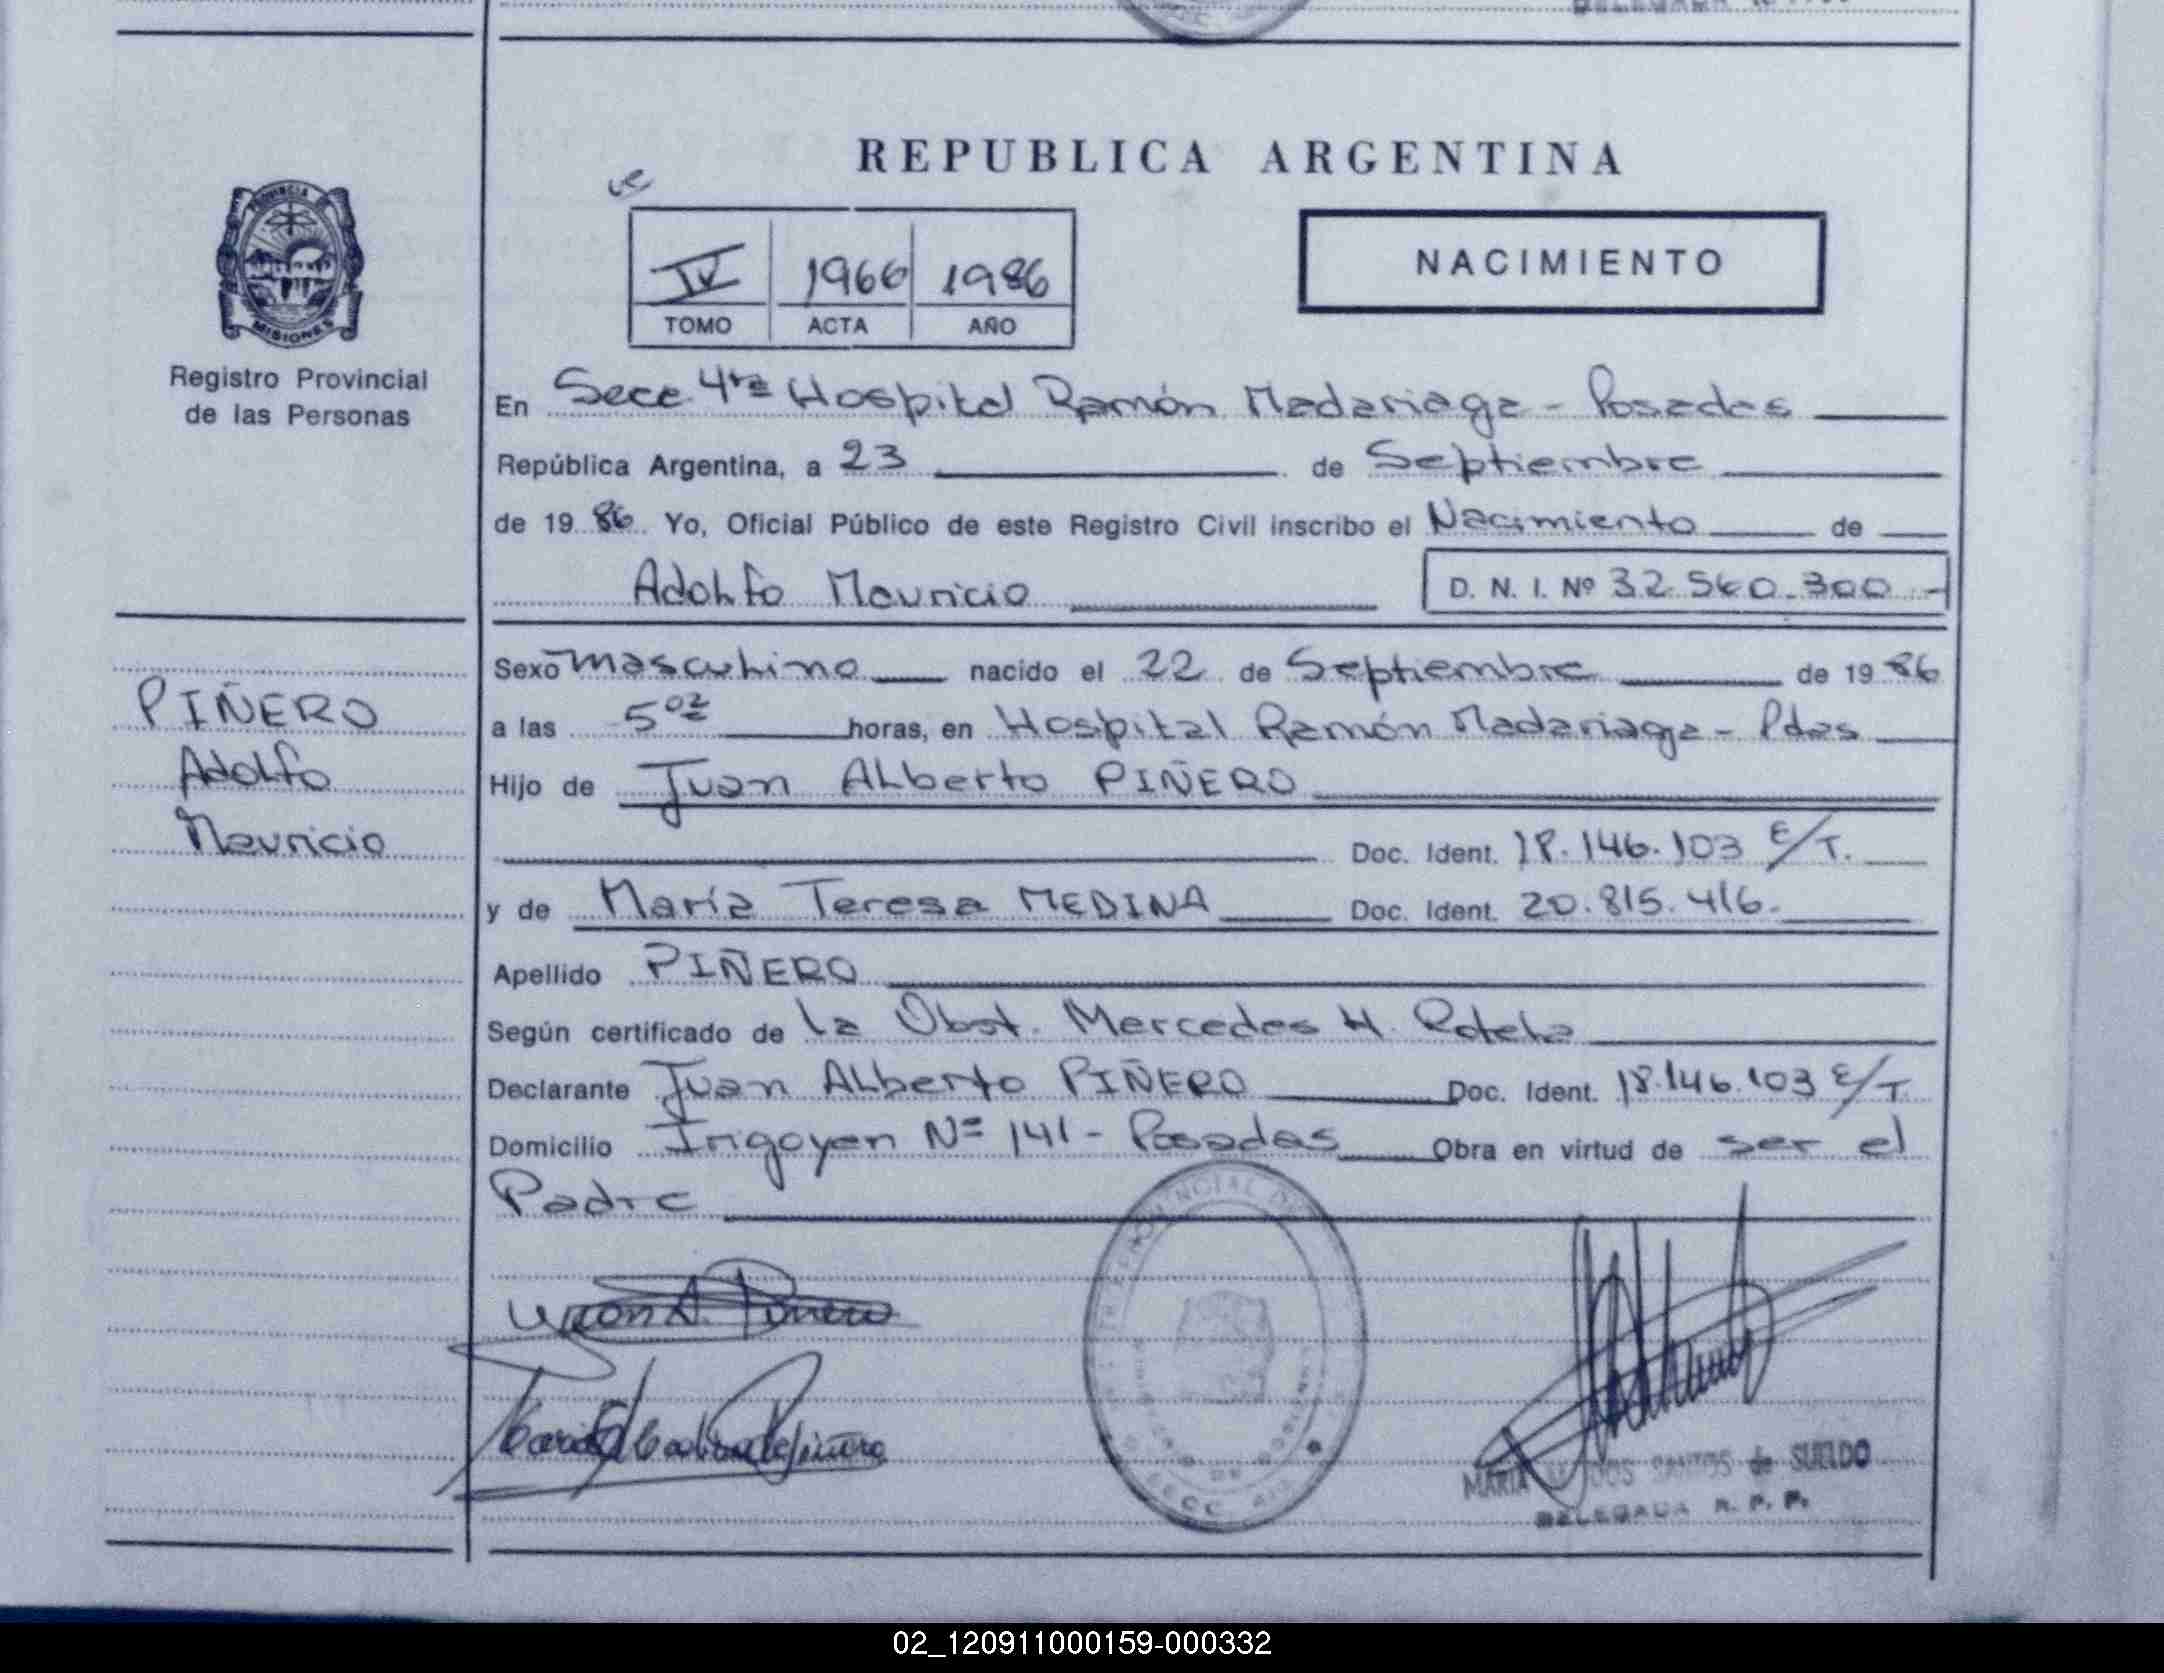 REPUBLICA ARGENTINA
PROVINCIA DE
MISIONES
Registro Provincial
de las Personas
IV 1966 1986
TOMO ACTA AÑO
NACIMIENTO
En Secc 4ta Hospital Ramón Madariaga - Posadas
República Argentina, a 23 de Septiembre
de 19 86 Yo, Oficial Público de este Registro Civil inscribo el Nacimiento de
Adolfo Mauricio D. N. I. Nº 32.560.300.-
PIÑERO
Adolfo
Mauricio
Sexo masculino nacido el 22 de Septiembre de 19 86
a las 5 02 horas, en Hospital Ramón Madariaga - Pdas
Hijo de Juan Alberto PIÑERO
Doc. Ident. 18.146.103 E/T.
y de María Teresa MEDINA Doc. Ident. 20.815.416.
Apellido PIÑERO
Según certificado de la Obst. Mercedes H. Rotela
Declarante Juan Alberto PIÑERO Doc. Ident. 18.146.103 E/T.
Domicilio Irigoyen Nº 141 - Posadas Obra en virtud de ser el
Padre
Juan A. Piñero
MARIA DOS SANTOS de SUELDO
DELEGADA R. P. P.
02_120911000159-000332